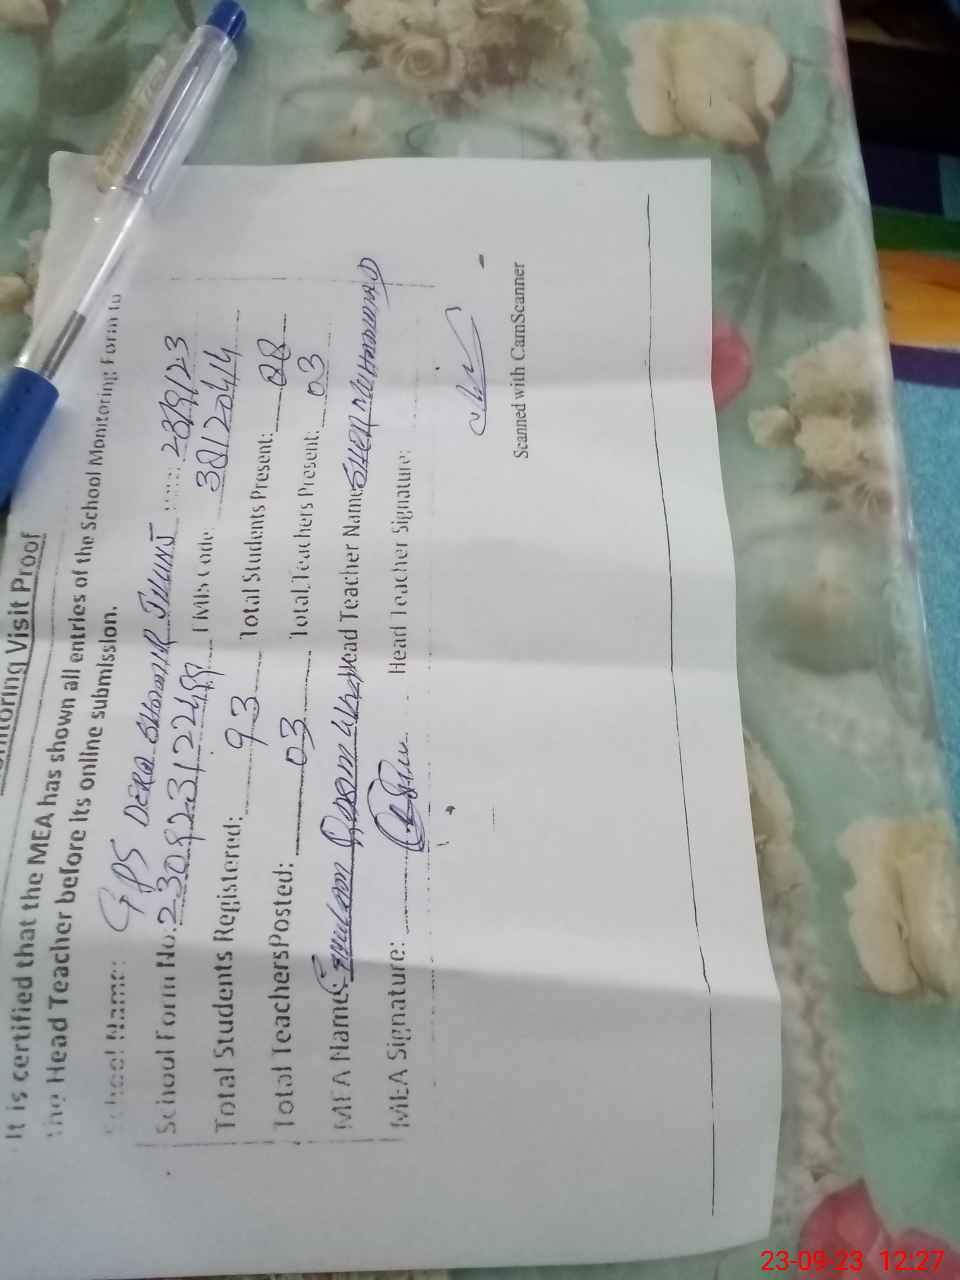 Visit Proof
It is certified that the MEA has shown all entries of the School Monitoring Form to
the Head Teacher before its online submission.
School Name: GPS DERA
School Form No: 23/9/23
EMIS Code 38120414
Total Students Registered: 93 Total Students Present:
Total TeachersPosted: 03 Total Teachers Present: 03
MEA Name: Head Teacher Name: SHER MUHAMMAD
MEA Signature: Head Teacher Signature:
Scanned with CamScanner
23-09-23 12:27